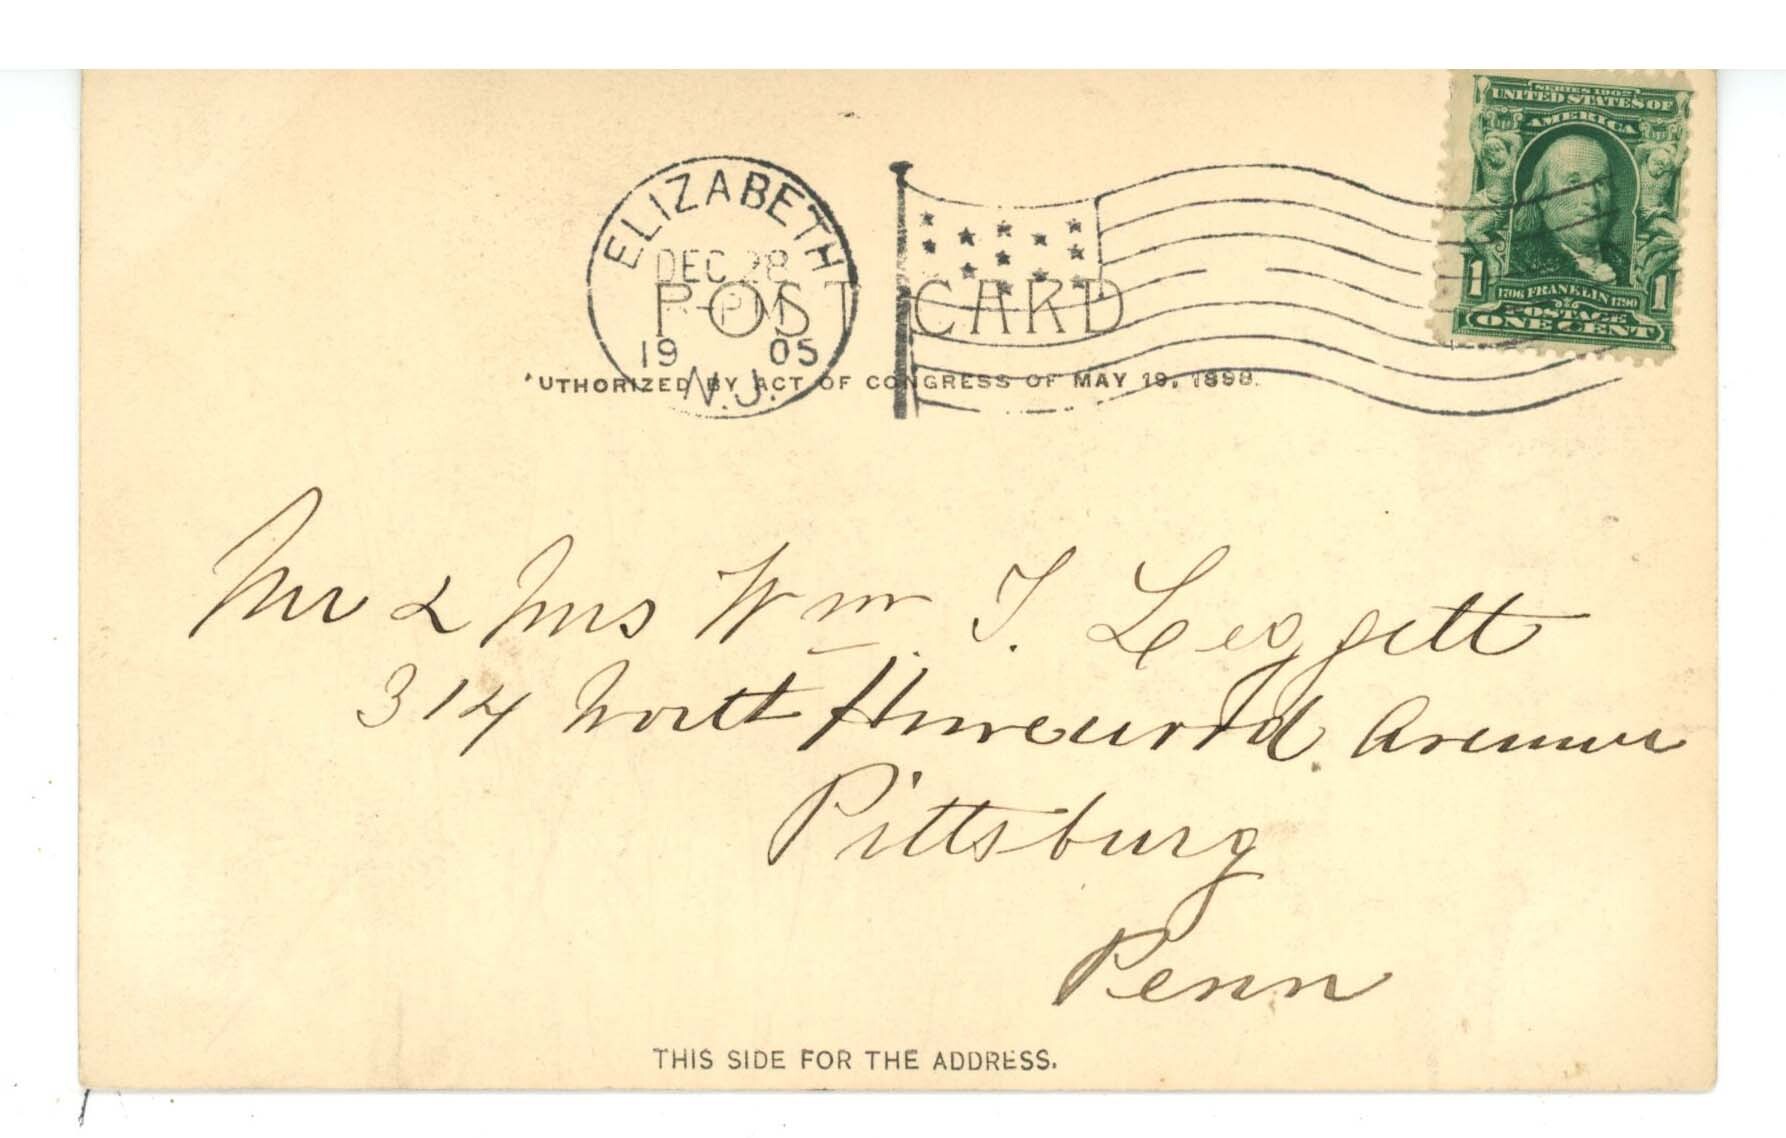 SERIES 1902
UNITED STATES OF
AMERICA
1 1706 FRANKLIN 1790 1
POSTAGE
ONE CENT
ELIZABETH
DEC 28
PM
1905
N.J.
POST CARD
UTHORIZED BY ACT OF CONGRESS OF MAY 19, 1898.
Mr & Mrs Wm. T. Leggett
314 North Homewood Avenue
Pittsburg
Penn
THIS SIDE FOR THE ADDRESS.